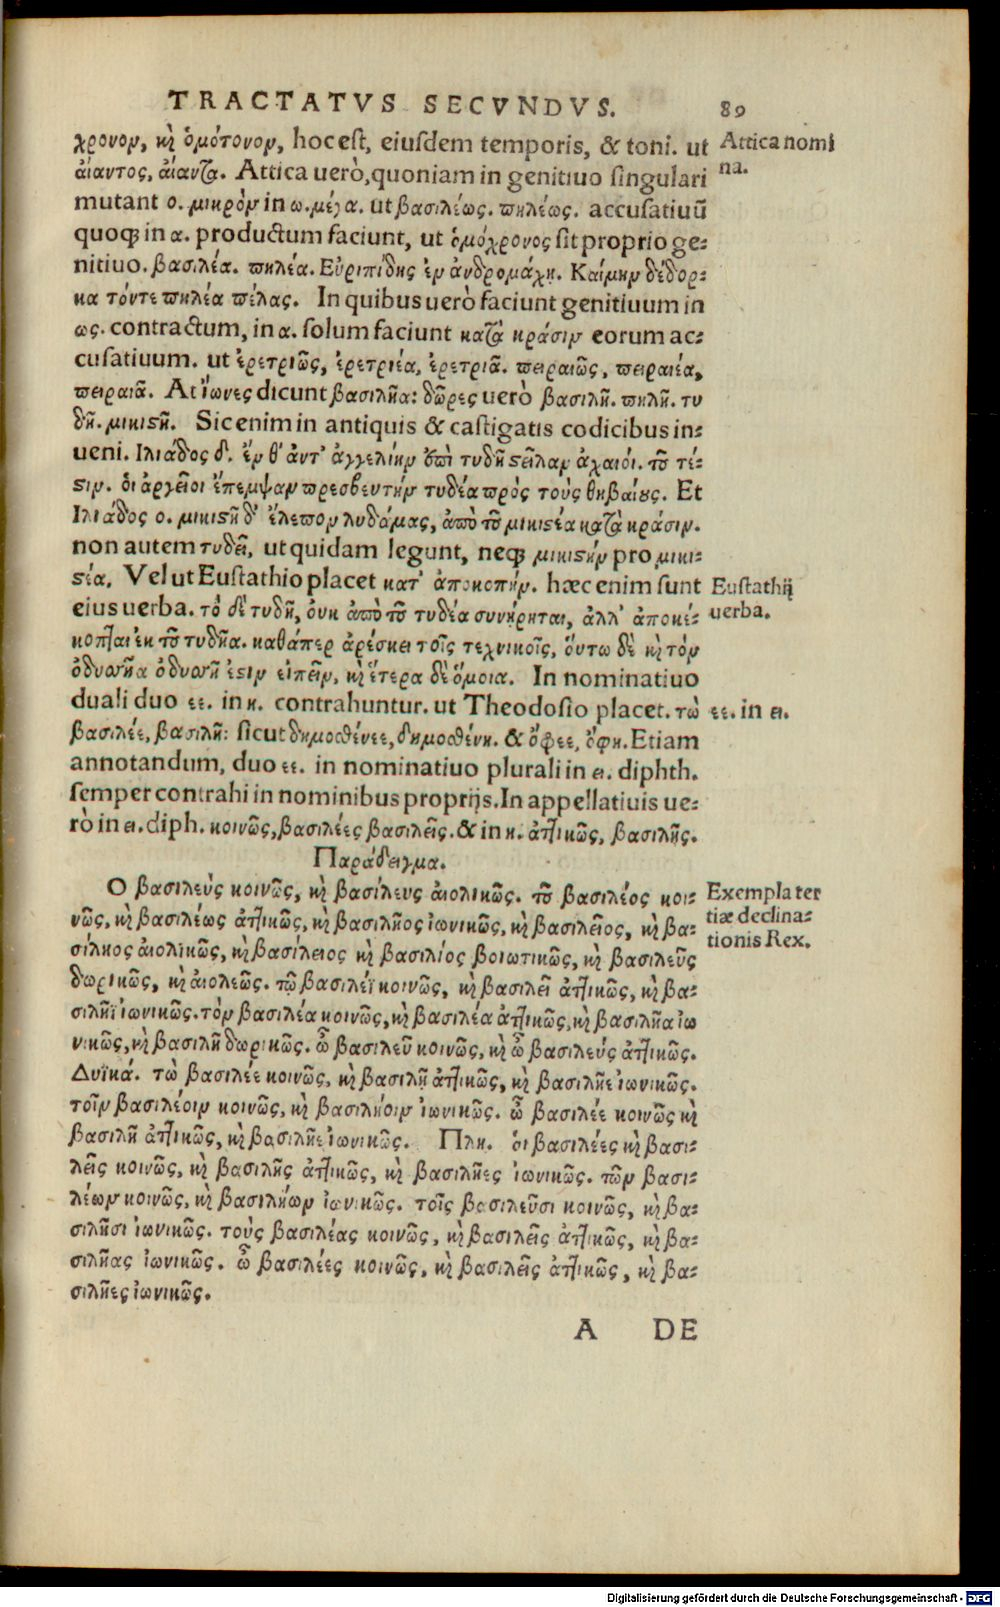 TRACTATVS SECVNDVS. 89
χρονον, κὶ ὁμότονον, hoc est, eiusdem temporis, & toni. ut
αἴαντος, αἴαντα. Attica uerò, quoniam in genitiuo singulari
mutant ο. μικρὸν in ω. μέγα. ut βασιλέως. πηλέως. accusatiuũ
quoq; in α. productum faciunt, ut ὁμόχρονος sit proprio ge-
nitiuo. βασιλέα. πηλέα. Εὐριπίδης ἐν ἀνδρομάχη. Καίμην δέδορ-
κα τόνδε πηλέα πέλας. In quibus uerò faciunt genitiuum in
ως. contractum, in α. solum faciunt κατὰ κράσιν eorum ac-
cusatiuum. ut ἐρετριῶς, ἐρετριέα, ἐρετριᾶ. πειραιῶς, πειραιέα,
πειραιᾶ. At ἴωνες dicunt βασιλῆα: δῶρες uerò βασιλῆ. πηλῆ. τυ
δῆ. μικιστῆ. Sic enim in antiquis & castigatis codicibus in-
ueni. Ιλιάδος δ. ἔν θ' ἀυτ' ἀγγελίην ἐπὶ τυδῆ στεῖλαν ἀχαιόι. τοῦ τέ-
στιν. ὁι ἀργεῖοι ἔπεμψαν πρεσβευτὴν τυδέα πρὸς τοὺς θηβαίους. Et
Ιλιάδος ο. μικιστῆ δ' ἔλεπον λυδάμας, ἀπὸ τοῦ μικιστέα κατὰ κράσιν.
non autem τυδεῖ, ut quidam legunt, neq; μικιστήν pro μικι-
στέα. Vel ut Eustathio placet κατ' ἀποκοπήν. hæc enim sunt
eius uerba. τὸ δὲ τυδῆ, ὀυκ ἀπὸ τοῦ τυδέα συνήρηται, ἀλλ' ἀποκέ-
κοπται ἐκ τοῦ τυδῆα. καθάπερ ἀρέσκει τοῖς τεχνικοῖς, ὅυτω δὲ κὶ τὸν
ὀδυσσῆα ὀδυσσῆ ἐστιν ἐιπεῖν, κὶ ἕτερα δὲ ὅμοια. In nominatiuo
duali duo εε. in η. contrahuntur. ut Theodosio placet. τὼ
βασιλέε, βασιλῆ: sicut δημοσθένεε, δημοσθένη. & ὄφεε, ὄφη. Etiam
annotandum, duo εε. in nominatiuo plurali in ει. diphth.
semper contrahi in nominibus proprijs. In appellatiuis ue-
rò in ει. diph. κοινῶς, βασιλέες βασιλεῖς. & in η. ἀττικῶς, βασιλῆς.
Παράδειγμα.
Ο βασιλεὺς κοινῶς, κὶ βασίλευς ἀιολικῶς. τοῦ βασιλέος κοι-
νῶς, κὶ βασιλέως ἀττικῶς, κὶ βασιλῆος ἰωνικῶς, κὶ βασιλεῖος, κὶ βα-
σίληος ἀιολικῶς, κὶ βασίλειος κὶ βασιλίος βοιωτικῶς, κὶ βασιλεῦς
δωρικῶς, κὶ ἀιολεῶς. τῷ βασιλέϊ κοινῶς, κὶ βασιλεῖ ἀττικῶς, κὶ βα-
σιλῆϊ ἰωνικῶς. τὸν βασιλέα κοινῶς, κὶ βασιλέα ἀττικῶς, κὶ βασιλῆα ἰω
νικῶς, κὶ βασιλῆ δωρικῶς. ὦ βασιλεῦ κοινῶς, κὶ ὦ βασιλεύς ἀττικῶς.
Δυϊκά. τὼ βασιλέε κοινῶς, κὶ βασιλῆ ἀττικῶς, κὶ βασιλῆε ἰωνικῶς.
τοῖν βασιλέοιν κοινῶς, κὶ βασιλήοιν ἰωνικῶς. ὦ βασιλέε κοινῶς κὶ
βασιλῆ ἀττικῶς, κὶ βασιλῆε ἰωνικῶς. Πλη. ὁι βασιλέες κὶ βασι-
λεῖς κοινῶς, κὶ βασιλῆς ἀττικῶς, κὶ βασιλῆες ἰωνικῶς. τῶν βασι-
λέων κοινῶς, κὶ βασιλήων ἰωνικῶς. τοῖς βασιλεῦσι κοινῶς, κὶ βα-
σιλῆσι ἰωνικῶς. τοὺς βασιλέας κοινῶς, κὶ βασιλεῖς ἀττικῶς, κὶ βα-
σιλῆας ἰωνικῶς. ὦ βασιλέες κοινῶς, κὶ βασιλεῖς ἀττικῶς, κὶ βα-
σιλῆες ἰωνικῶς.
A DE
Attica nomi
na.
Eustathij
uerba.
εε. in ει.
Exempla ter
tiæ declina-
tionis Rex.
Digitalisierung gefördert durch die Deutsche Forschungsgemeinschaft - DFG